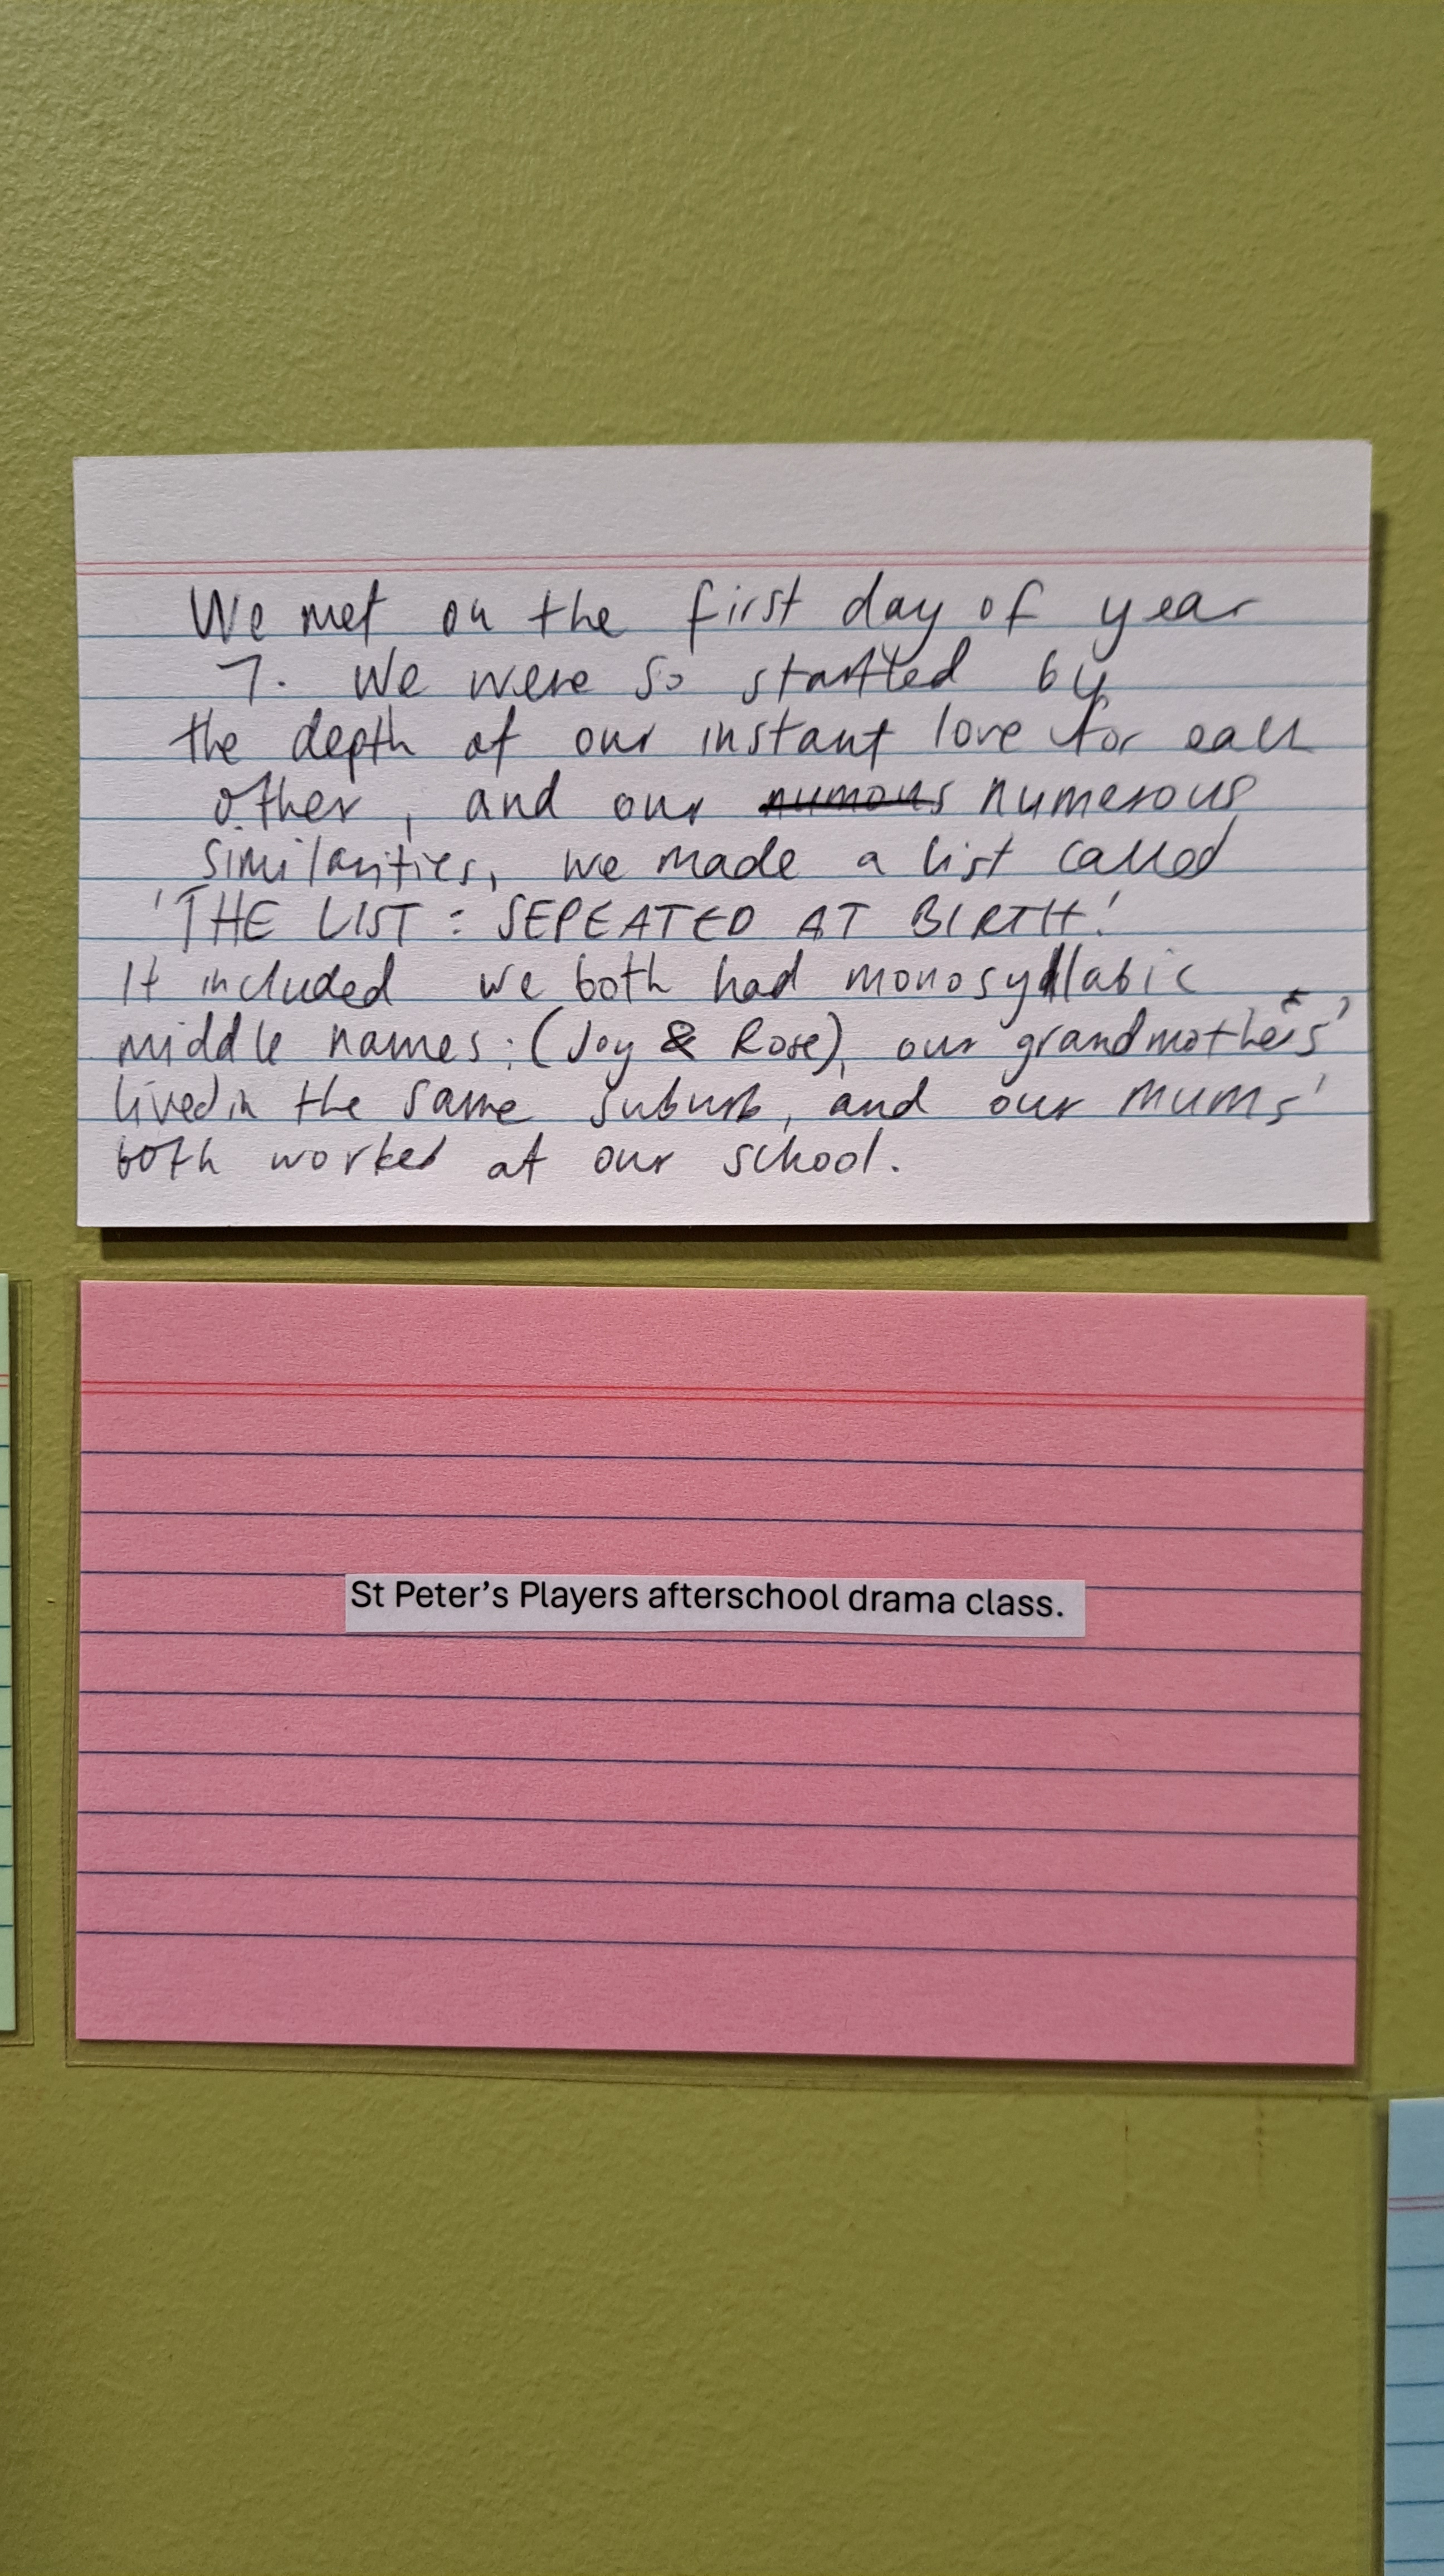 We met on the first day of year
7. We were so startled by
the depth of our instant love for each
other, and our numous numerous
similarities, we made a list called
'THE LIST: SEPEATED AT BIRTH!
It included we both had monosyllabic
middle names: (Joy & Rose), our grandmothers'
lived in the same suburb, and our mums'
both worked at our school.
St Peter's Players afterschool drama class.